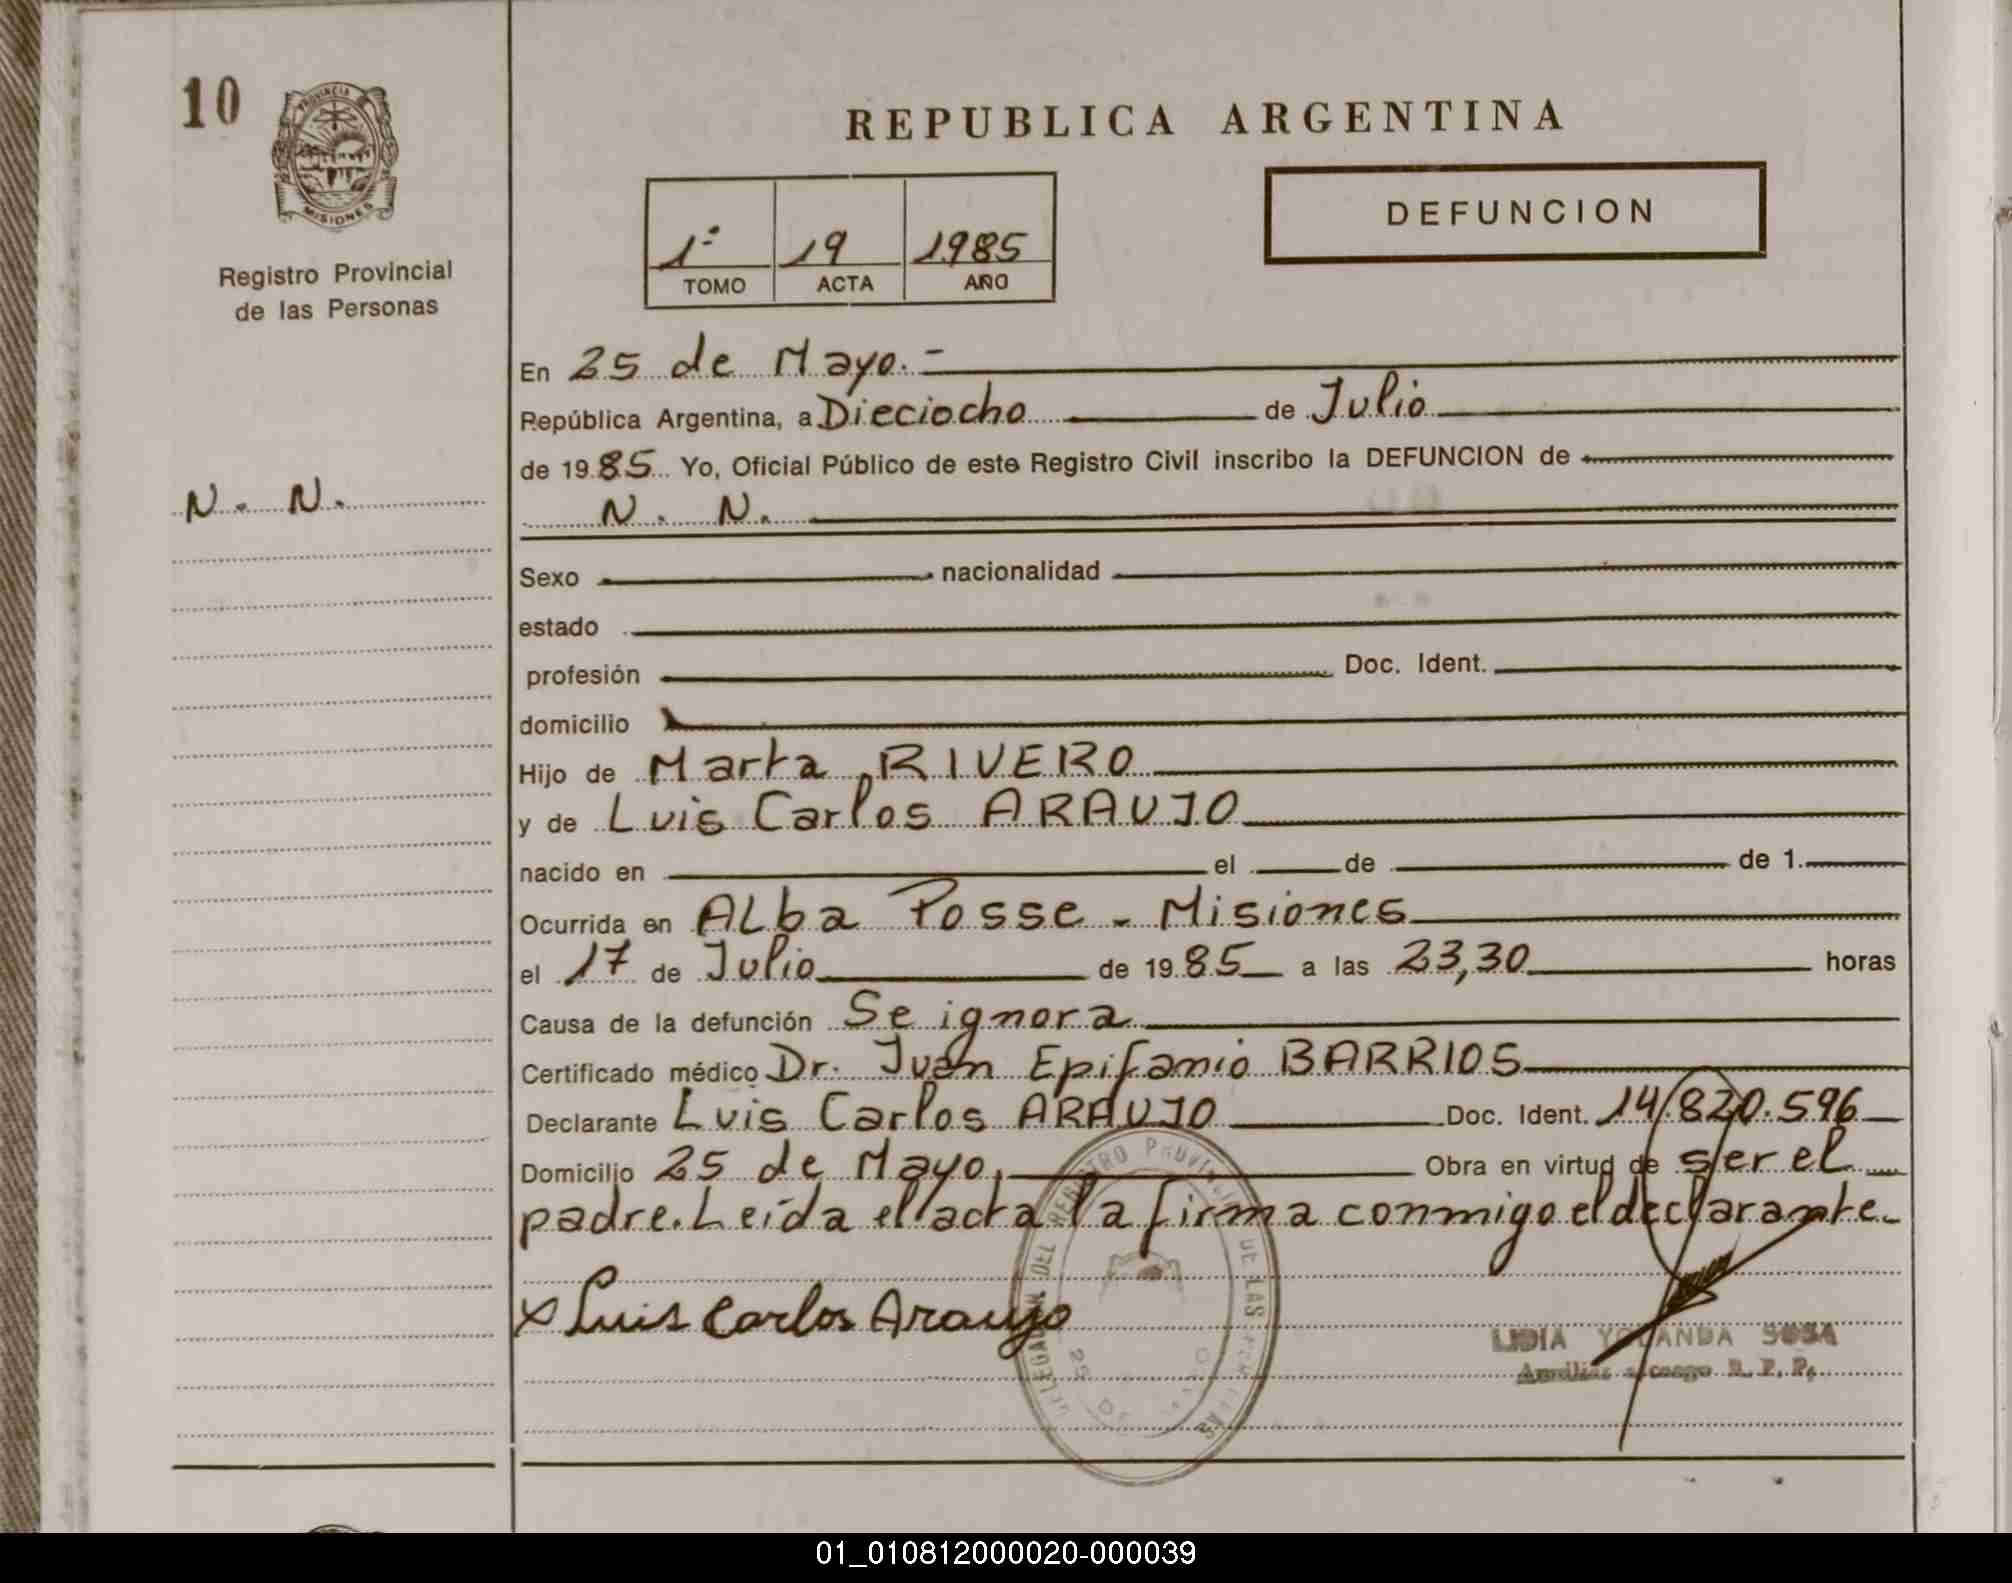 10
PROVINCIA
MISIONES
Registro Provincial
de las Personas
N. N.
REPUBLICA ARGENTINA
DEFUNCION
1º 19 1985
TOMO ACTA AÑO
En 25 de Mayo.-
República Argentina, a Dieciocho de Julio
de 1985 Yo, Oficial Público de este Registro Civil inscribo la DEFUNCION de
N. N.
Sexo nacionalidad
estado
profesión Doc. Ident.
domicilio
Hijo de Marta RIVERO
y de Luis Carlos ARAUJO
nacido en el de de 1.
Ocurrida en ALba Posse - Misiones
el 17 de Julio de 1985 a las 23,30 horas
Causa de la defunción Se ignora
Certificado médico Dr. Juan Epifanio BARRIOS
Declarante Luis Carlos ARAUJO Doc. Ident. 14.820.596
Domicilio 25 de Mayo, Obra en virtud de ser el
padre. Leída el acta la firma conmigo el declarante.
x Luis Carlos Araujo
DEL REGISTRO PROVINCIAL DE LAS
25 DE
LIDIA YOLANDA SOSA
Auxiliar a cargo R. P. P.
01_010812000020-000039